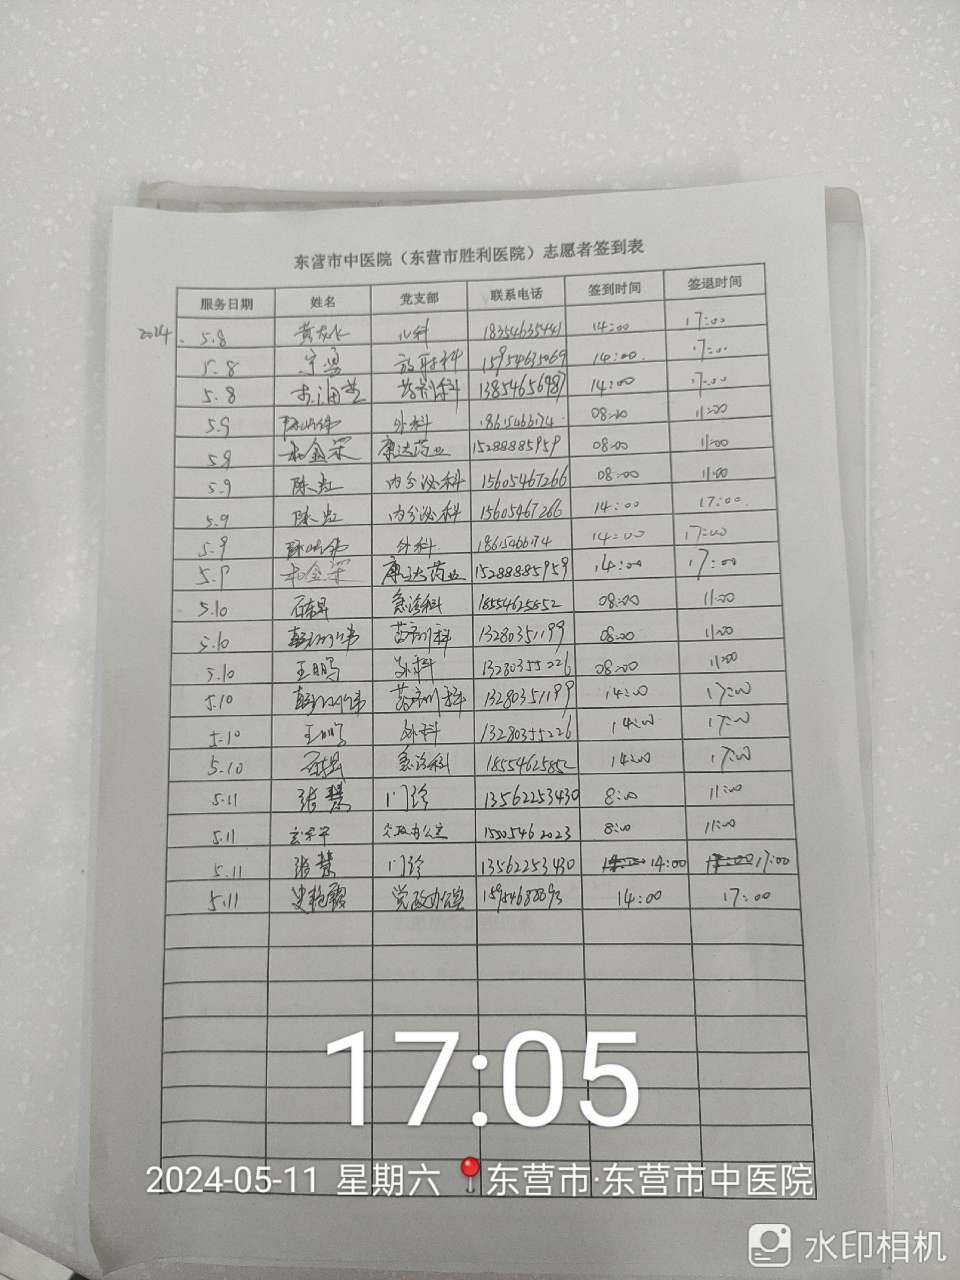 东营市中医院（东营市胜利医院）志愿者签到表
服务日期 姓名 党支部 联系电话 签到时间 签退时间
2024. 5.8 儿科 18354635441 14:00 17:00
5.8 宁盈 放射科 15954635069 14:00 17:00
5.8 药剂科 13854656987 14:00 17:00
5.9 外科 18615466174 08:00 11:00
5.9 康达药业 15288885959 08:00 11:00
5.9 陈虹 内分泌科 15605467266 08:00 11:00
5.9 陈虹 内分泌科 15605467266 14:00 17:00
5.9 外科 18615466174 14:00 17:00
5.9 康达药业 15288885959 14:00 17:00
5.10 急诊科 18554625852 08:00 11:00
5.10 药剂科 13280351199 08:00 11:00
5.10 王鹏 外科 13280355226 08:00 11:00
5.10 药剂科 13280351199 14:00 17:00
5.10 王鹏 外科 13280355226 14:00 17:00
5.10 急诊科 18554625852 14:00 17:00
5.11 张慧 门诊 13562253430 8:00 11:00
5.11 党政办公室 15505462023 8:00 11:00
5.11 张慧 门诊 13562253430 14:00 17:00
5.11 史艳霞 党政办公室 14:00 17:00
17:05
2024-05-11 星期六 东营市·东营市中医院
水印相机